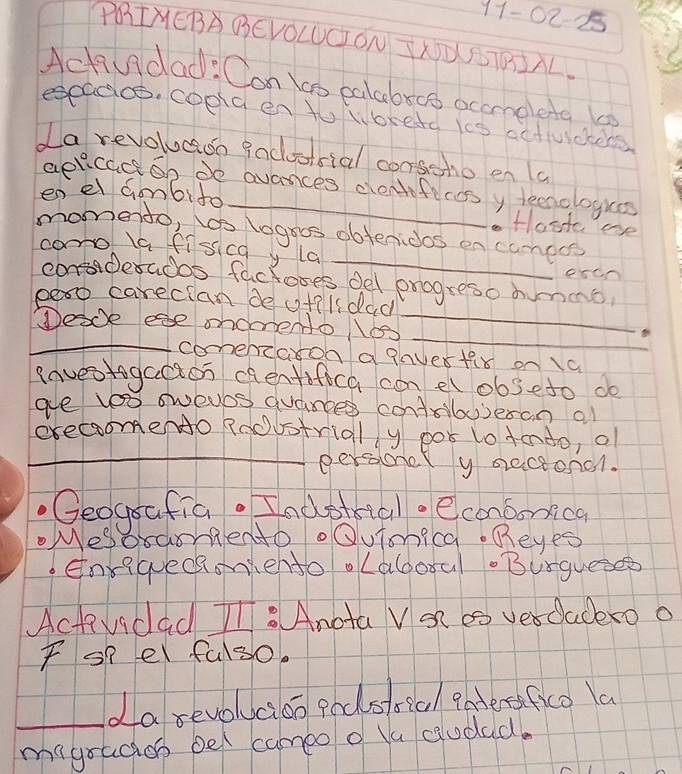 11-02-25
PRIMERA REVOLUCION INDUSTRIAL.
Actividad: Con las palabras acompleta los
espacios. copia en tu libreta las actividades
La revolucion industrial consistio en la
aplicacion de avances cientificos y tecnologicos
en el ambito ____________. Hasta ese
momento, los logros obtenidos en campos
como la fisica y la ____________ eran
considerados factores del progreso humano,
pero carecian de utilidad ____________.
Desde ese momento los ____________
____________ comenzaron a invertir en la
investigacion cientifica con el objeto de
que los nuevos avances contribuyeran al
crecimiento industrial, y por lo tanto, al
____________ personal y nacional.
•Geografia •Industrial •Economica
•Mejoramiento •Quimica •Reyes
•Enriquecimiento •Laboral •Burgueses
Actividad II: Anota V si es verdadero o
F si el falso.
____La revolucion industrial intensifico la
migracion del campo a la ciudad.